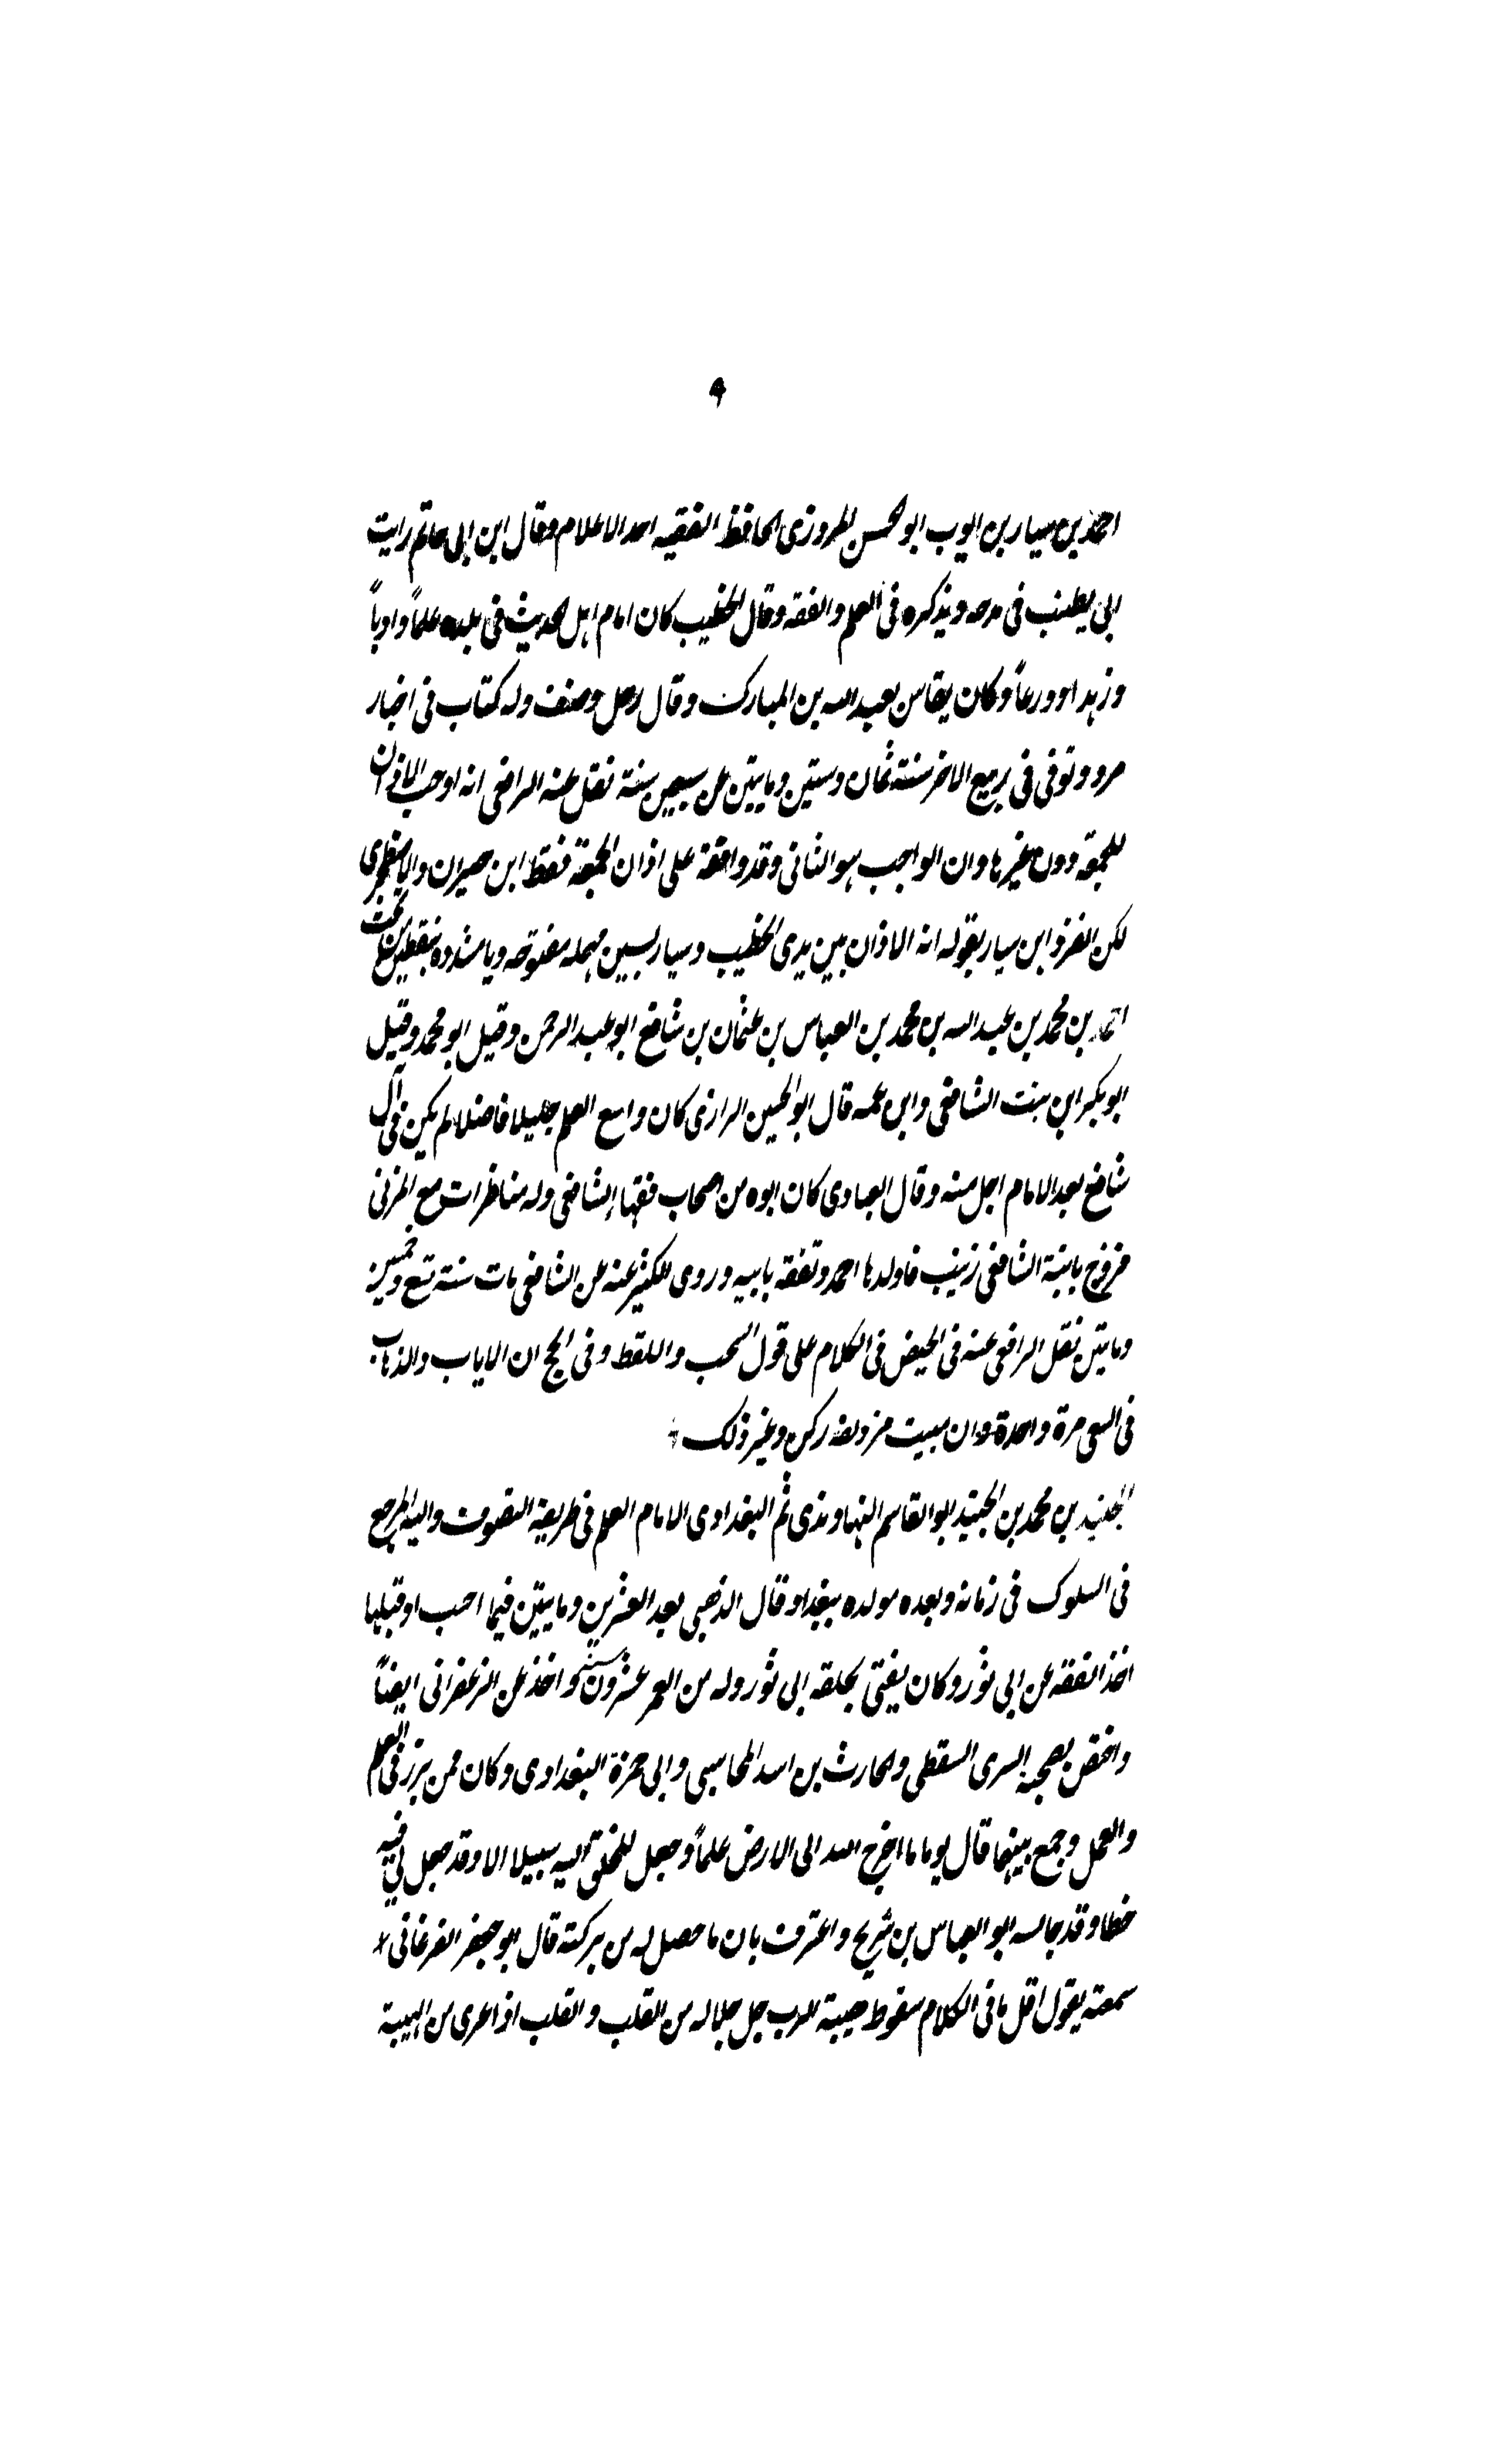 ۹
احمد بن سيار بن ايوب ابو الحسن المروزى الحافظ الفقيه احد الاعلام وقال ابن ابى حاتم رايت
ابى يطنب فى مدحه ويذكره فى العلم والفقه وقال الخطيب كان امام اهل الحديث فى بلده علماً وادباً
وزهدا وورعاً وكان يقاس بعبد الله بن المبارك وقال رحل وصنف وله كتاب فى اخبار
مرو وتوفى فى ربيع الاخر سنة ثمان وستين ومايتين عن سبعين سنة نقل عنه الرافعى انه اوجب الاذان
للجمعة دون غيرها وان الواجب هو الثانى وقد وافقه على اذان الجمعة فقط ابن خيران والاصطخرى
لكن انفرد ابن سيار بقوله انه الاذان بين يدى الخطيب وسيار بسين مهمله مفتوحه ويا مشدده بنقطين من تحت
احمد بن محمد بن عبد الله بن محمد بن العباس بن عثمان بن شافع ابو عبد الرحمن وقيل ابو محمد وقيل
ابو بكر ابن بنت الشافعى وابن عمه قال ابو الحسين الرازى كان واسع العلم جليلا فاضلا لم يكن فى آل
شافع بعد الامام اجل منه وقال العبادى كان ابوه من اصحاب فقهاء الشافعى وله مناظرات مع المزنى
فزوج بابنة الشافعى زينب فاولدها احمد وتفقه بابيه وروى الكثير عنه عن الشافعى مات سنة تسع وخمسين
ومايتين نقل الرافعى عنه فى الحيض فى الكلام على قول السحب واللقط وفى الحج ان الاياب والذهاب
فى السعى مرة واحدة وان مبيت مزدلفه ركن وغير ذلك
الجنيد بن محمد بن الجنيد ابو القاسم النهاوندى ثم البغدادى الامام العلم فى طريقة التصوف واليه المرجع
فى السلوك فى زمانه وبعده مولده ببغداد قال الذهبى بعد العشرين ومايتين فيما احسب او قبلها
اخذ الفقه عن ابى ثور وكان يفتى بحلقه ابى ثور وله من العمر عشرون سنة واخذ عن الزعفرانى ايضاً
واختص بصحبة السرى السقطى والحارث بن اسد المحاسبى وابى حمزة البغدادى وكان ممن برز فى العلم
والعمل وجمع بينهما قال يوما ما اخرج الله الى الارض علماً وجعل للخلق اليه سبيلا الا وقد جعل لى فيه
حظا وقد جالسه ابو العباس بن شريح واعترف بان ما حصل له من بركته قال ابو جعفر الفرغانى
سمعته يقول اقل ما فى الكلام سقوط هيبة الرب جل جلاله من القلب والقلب اذا عرى من الهيبة